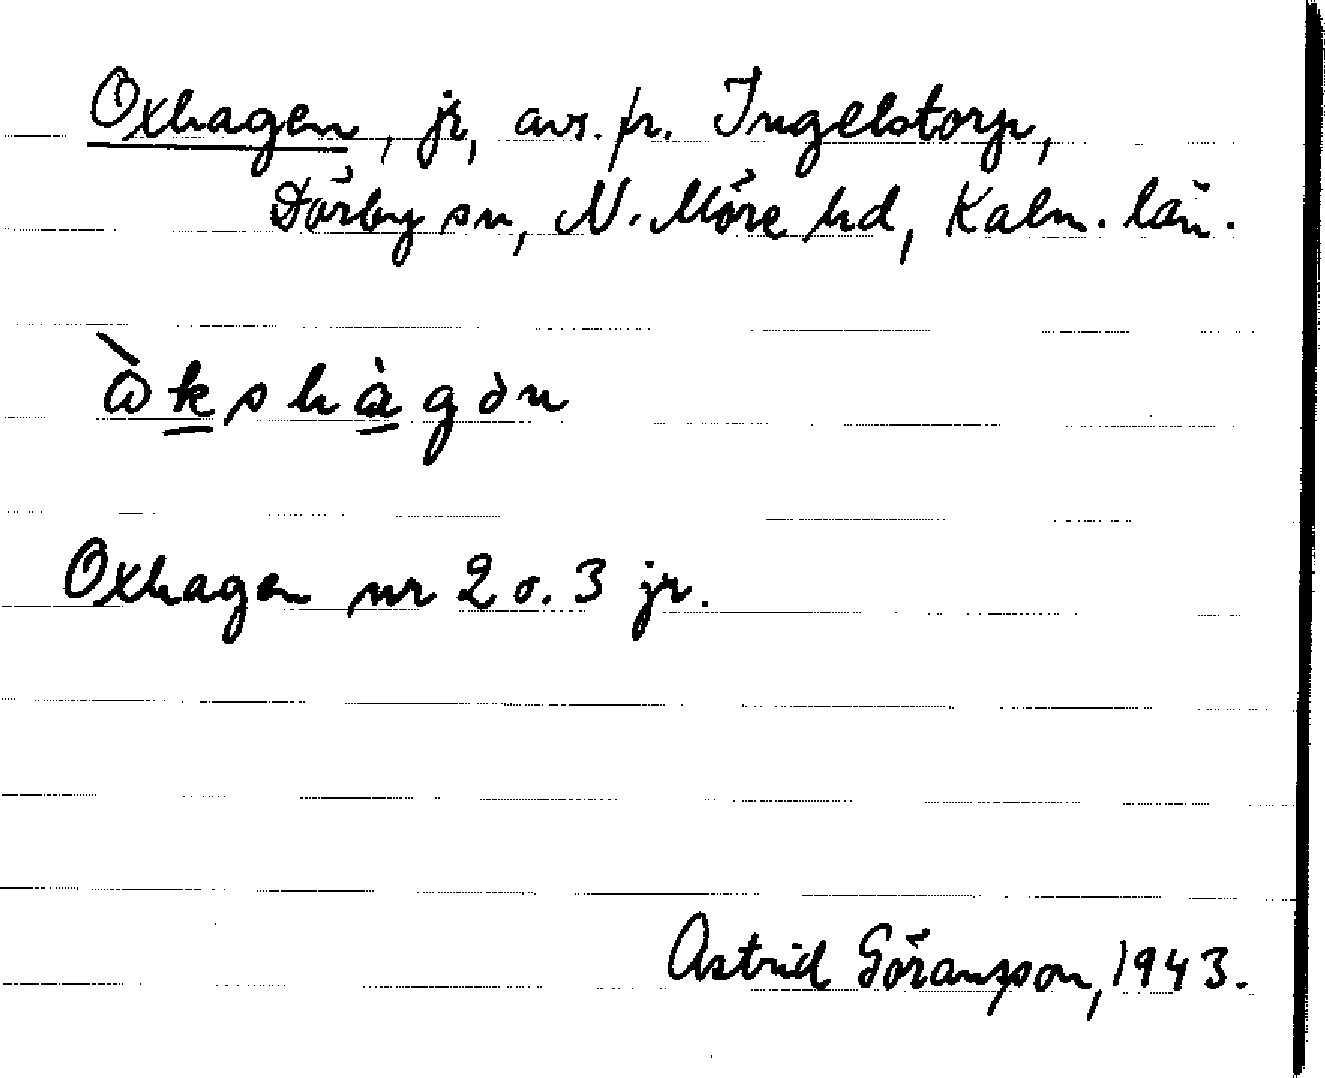 Oxhagen, jr, avs. fr. Ingelstorp,
Dörby sn, N. Möre hd, Kalm. län.
Oxhagen nr 2 o. 3 jr.
Astrid Göransson, 1943.